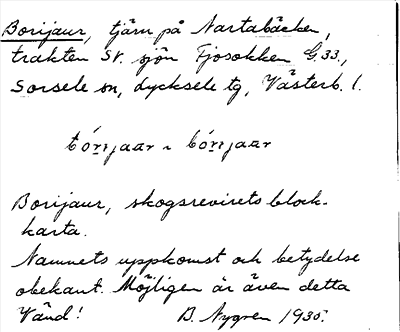 Borijaur, tjärn på Nartabäcken,
trakten SV. sjön Fjosokken G.33.,
Sorsele sn, Lycksele tg, Västerb. l.
bórrjaar ~ bórrjaar
Borijaur, skogsrevirets block-
karta.
Namnets uppkomst och betydelse
obekant. Möjligen är även detta
Vänd! B. Nygren 1935.